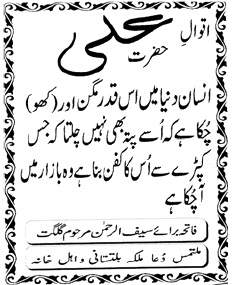 اقوالِ
حضرت
علی
انسان دنیا میں اس قدر مگن اور (کھو)
چکا ہے کہ اُسے پتہ بھی نہیں چلتا کہ جس
کپڑے سے اُس کا کفن بنا ہے وہ بازار میں
آچکا ہے
فاتحہ برائے سیف الرحمٰن مرحوم گلگت
ملتمس دُعا ملکہ بلتستانی و اہل خانہ